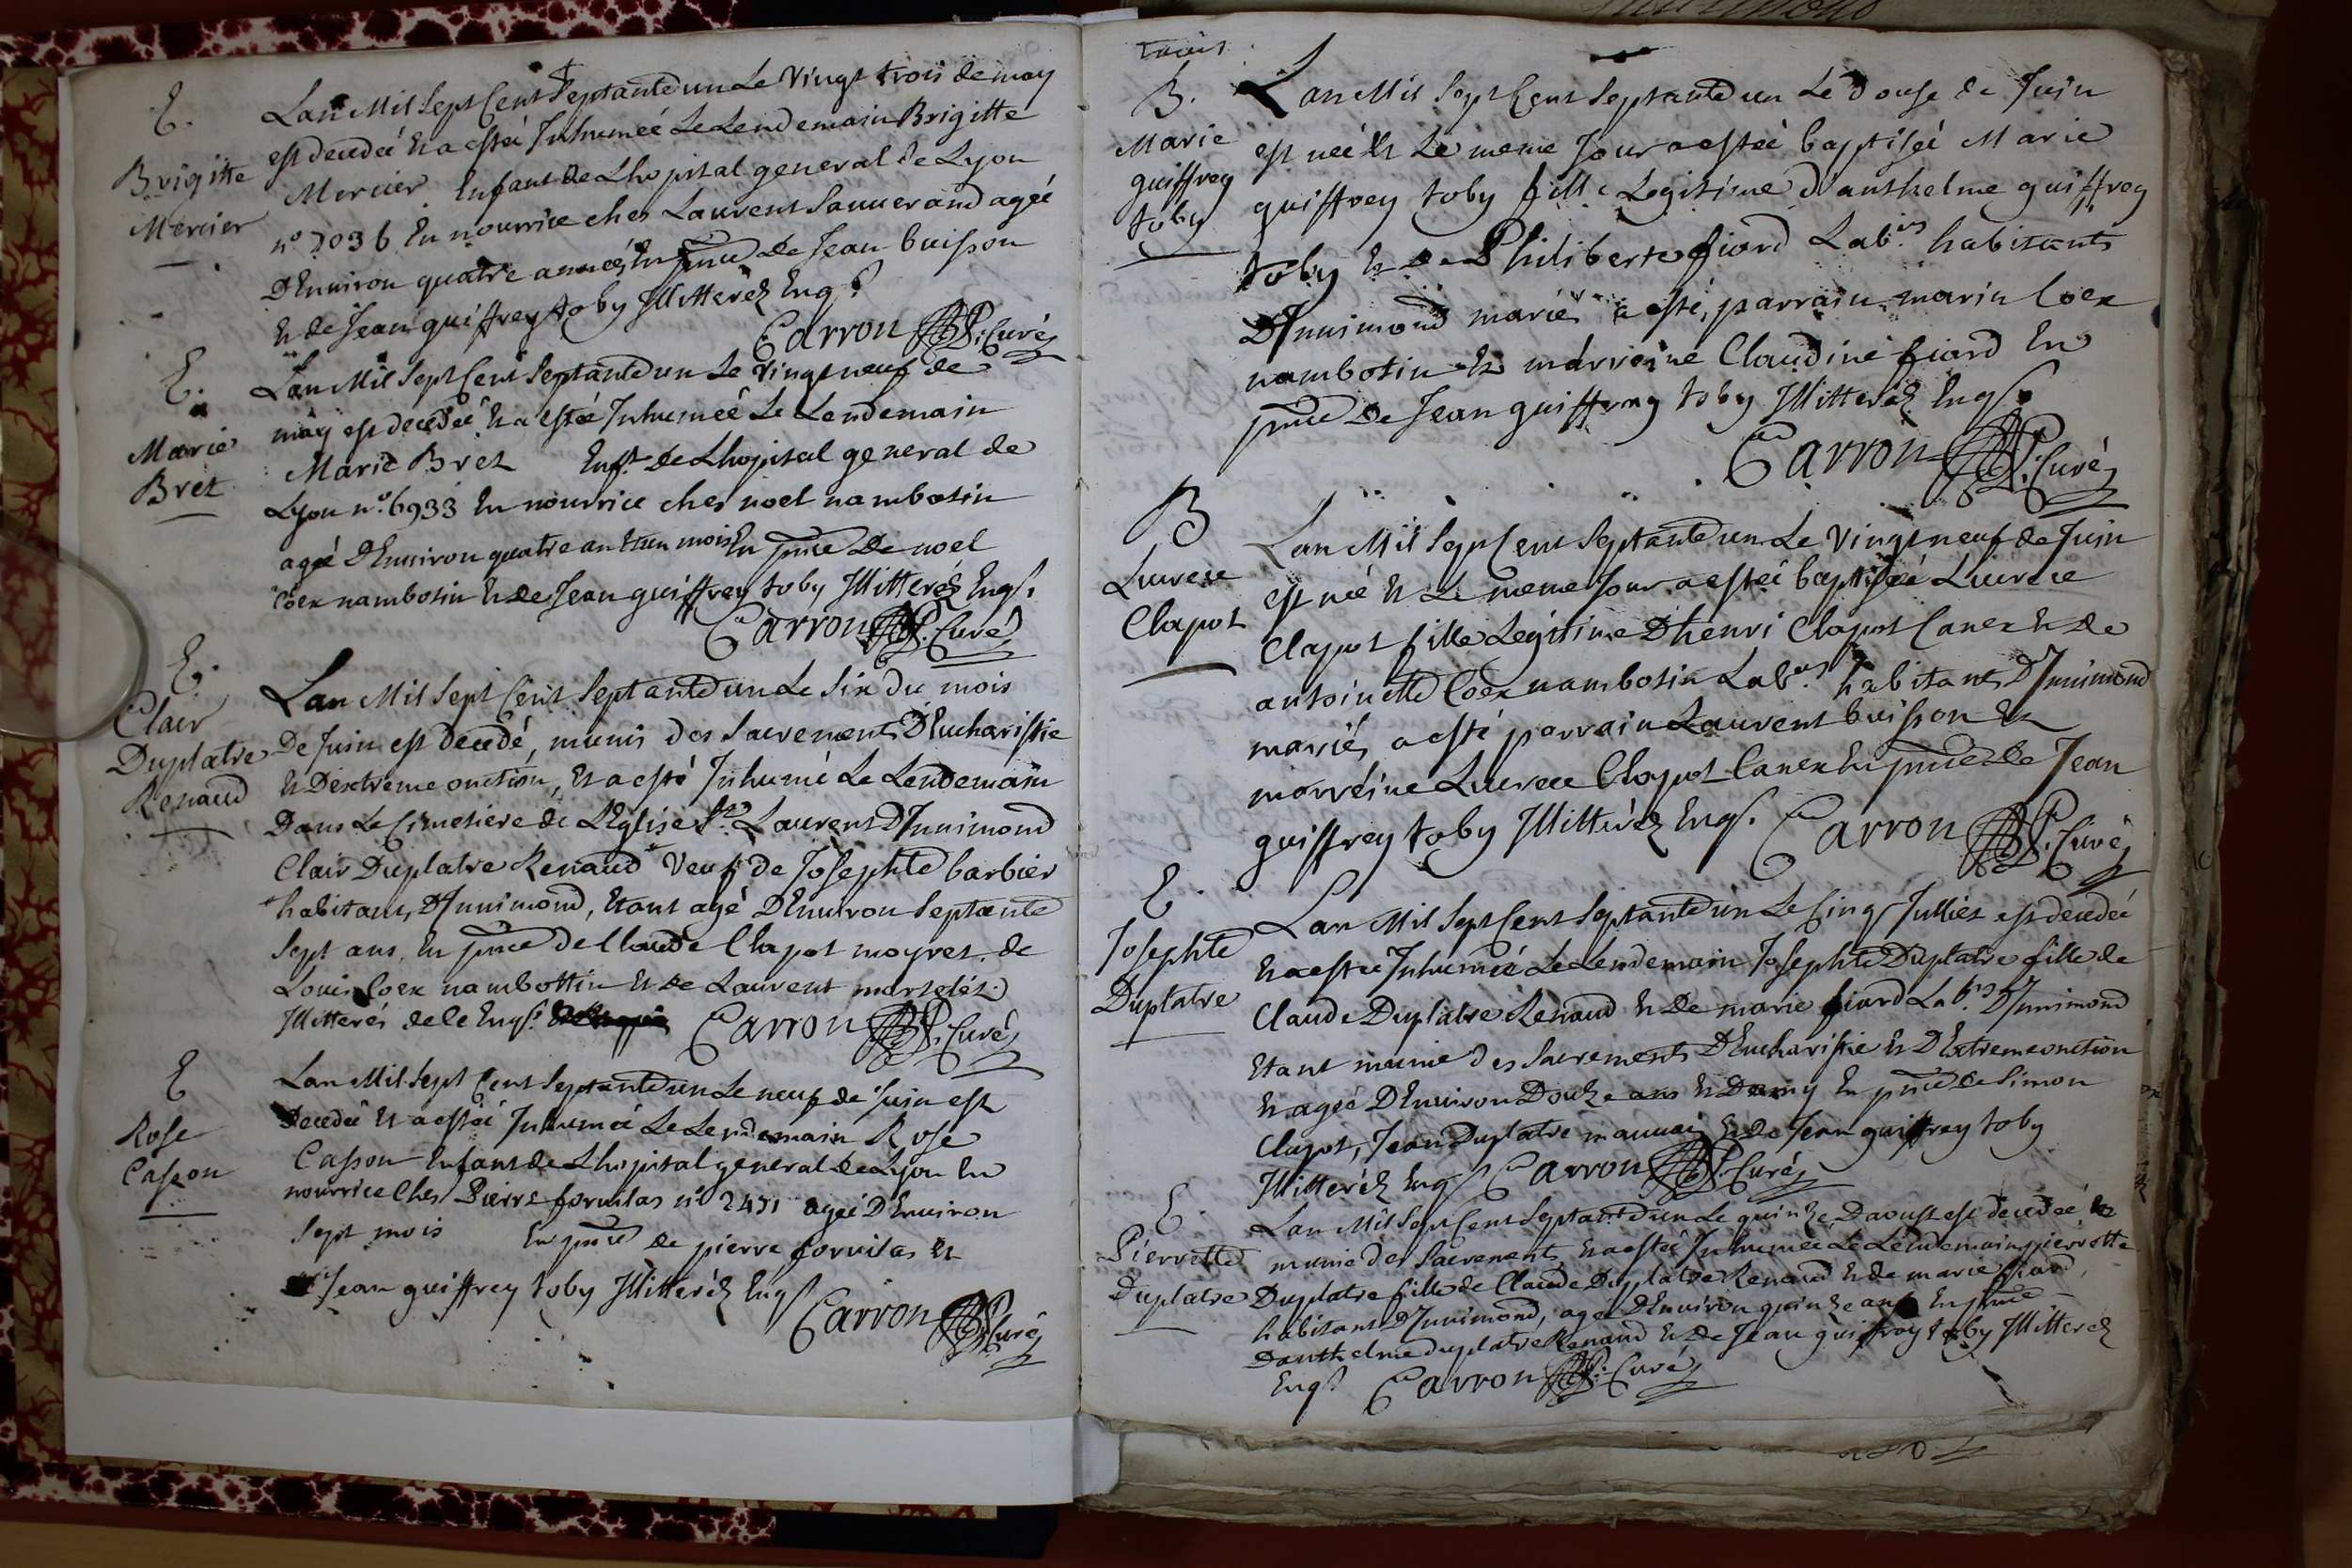 E.
Brigitte
Mercier
Lan Mil Sept Cent Septante un Le Vingt trois de may
est decedeé Et a estéé Inhumeé Le Lendemain Brigitte
Mercier Enfant de Lhopital general de Lyon
n° 7036 En nourrice ches Laurent Sauuerand ageé
D'Enuiron quatre anneé, En pnce de Jean buisson
Et de Jean guiffrey toby Illitteréz Enqs
Carron P. Curé
E.
Marie
Bret
Lan Mil Sept Cent Septante un Le Vingt neuf de
may est decedeé Et a estéé Inhumeé Le Lendemain
Marie Bret Enft De Lhopital general de
Lyon n° 6933 En nourrice ches noel nambotin
ageé D'Enuiron quatre an Et un mois En pnce De noel
Coex nambotin Et de Jean guiffrey toby Illitteréz Enqs
Carron P. Curé
E.
Clair
Duplatre
Renaud
Lan Mil Sept Cent Septante un Le Six du mois
De Juin est decedé, munis des Sacrements D'Eucharistie
Et D'extreme onction, Et a esté Inhumé Le Lendemain
Dans Le Cimetiere de L'Eglise St Laurent D'Innimond
Clair Duplatre Renaud Veuf de Josephte barbier
habitant D'Innimond, Etant agé D'Enuiron Septante
Sept ans, En pnce de Claude Clapot moyret, de
Louis Coex nambottin Et de Laurent
Illitterés de le Enqs
Carron P. Curé
E
Rose
Casson
Lan Mil Sept Cent Septante un Le neuf de Juin est
Decedeé Et a estéé Inhumeé Le Lendemain Rose
Casson Enfant de Lhopital general de Lyon En
nourrice Ches Pierre n° 2471 ageé D'Enuiron
Sept mois En pnce de pierre Et
Jean guiffrey toby Illitteréz Enqs
Carron P. Curé
B.
Marie
guiffrey
toby
Lan Mil Sept Cent Septante un Le Douse de Juin
est neé Et Le meme Jour a estéé baptiseé Marie
guiffrey toby fille Legitime d'anthelme guiffrey
toby Et De Philiberte fiard Labrs habitants
D'Innimond mariés a esté, parrain marin Coex
nambotin Et marreine Claudine fiard En
pnce de Jean guiffrey toby Illitteréz Enqs
Carron P. Curé
B
Lucrece
Clapot
Lan Mil Sept Cent Septante un Le Vingt neuf de Juin
est neé Et Le meme Jour a estéé baptiseé Lucrece
Clapot fille Legitime D'henri Clapot Canex Et De
antoinette Coex nambotin Labrs habitants D'Innimond
mariés, a esté parrain Laurent buisson Et
marréine Lucrece Clapot Canex En pnce de Jean
guiffrey toby Illitteréz Enqs Carron P. Curé
E.
Josephte
Duplatre
Lan Mil Sept Cent Septante un Le Cinq Julliet est decedeé
Et a estéé Inhumeé Le Lendemain Josephte Duplatre fille de
Claude Duplatre Renaud Et De marie fiard Labrs D'Innimond
Etant munie des Sacrements D'Eucharistie Et D'Extreme onction
Et ageé D'Enuiron Douze ans Et Demy En pnce de Simon
Clapot, Jean Duplatre Et De Jean guiffrey toby
Illitteréz Enqs Carron P. Curé
E.
Pierrette
Duplatre
Lan Mil Sept Cent Septante un Le quinze Daoust est decedeé
munie des Sacrements, Et a estéé Inhumeé Le Lendemain pierrette
Duplatre fille de Claude Duplatre Renaud Et de marie fiard,
habitant D'Innimond, ageé D'Enuiron quinze ans En pnce
Danthelme duplatre Renaud Et De Jean guiffrey toby Illitteréz
Enqs Carron P. Curé